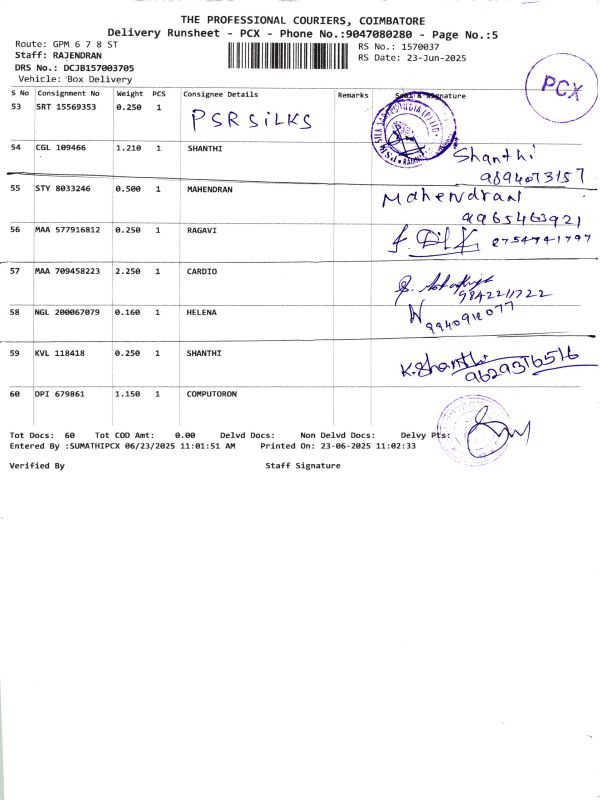 THE PROFESSIONAL COURIERS, COIMBATORE
Delivery Runsheet - PCX - Phone No.:9047080280 - Page No.:5
Route: GPM 6 7 8 ST
Staff: RAJENDRAN
DRS No.: DCJB157003705
Vehicle: Box Delivery
RS No.: 1570037
RS Date: 23-Jun-2025
PCX
S No Consignment No Weight PCS Consignee Details Remarks Seal & Signature
53 SRT 15569353 0.250 1 PSR SILKS
54 CGL 109466 1.210 1 SHANTHI Shanthi
9894073157
55 STY 8033246 0.500 1 MAHENDRAN Mahendran
9965463921
56 MAA 577916812 0.250 1 RAGAVI
57 MAA 709458223 2.250 1 CARDIO
9842211722
58 NGL 200067079 0.160 1 HELENA
9940912077
59 KVL 118418 0.250 1 SHANTHI K.Shanthi
9629376516
60 DPI 679861 1.150 1 COMPUTORON
Tot Docs: 60 Tot COD Amt: 0.00 Delvd Docs: Non Delvd Docs: Delvy Pts:
Entered By :SUMATHIPCX 06/23/2025 11:01:51 AM Printed On: 23-06-2025 11:02:33
Verified By Staff Signature